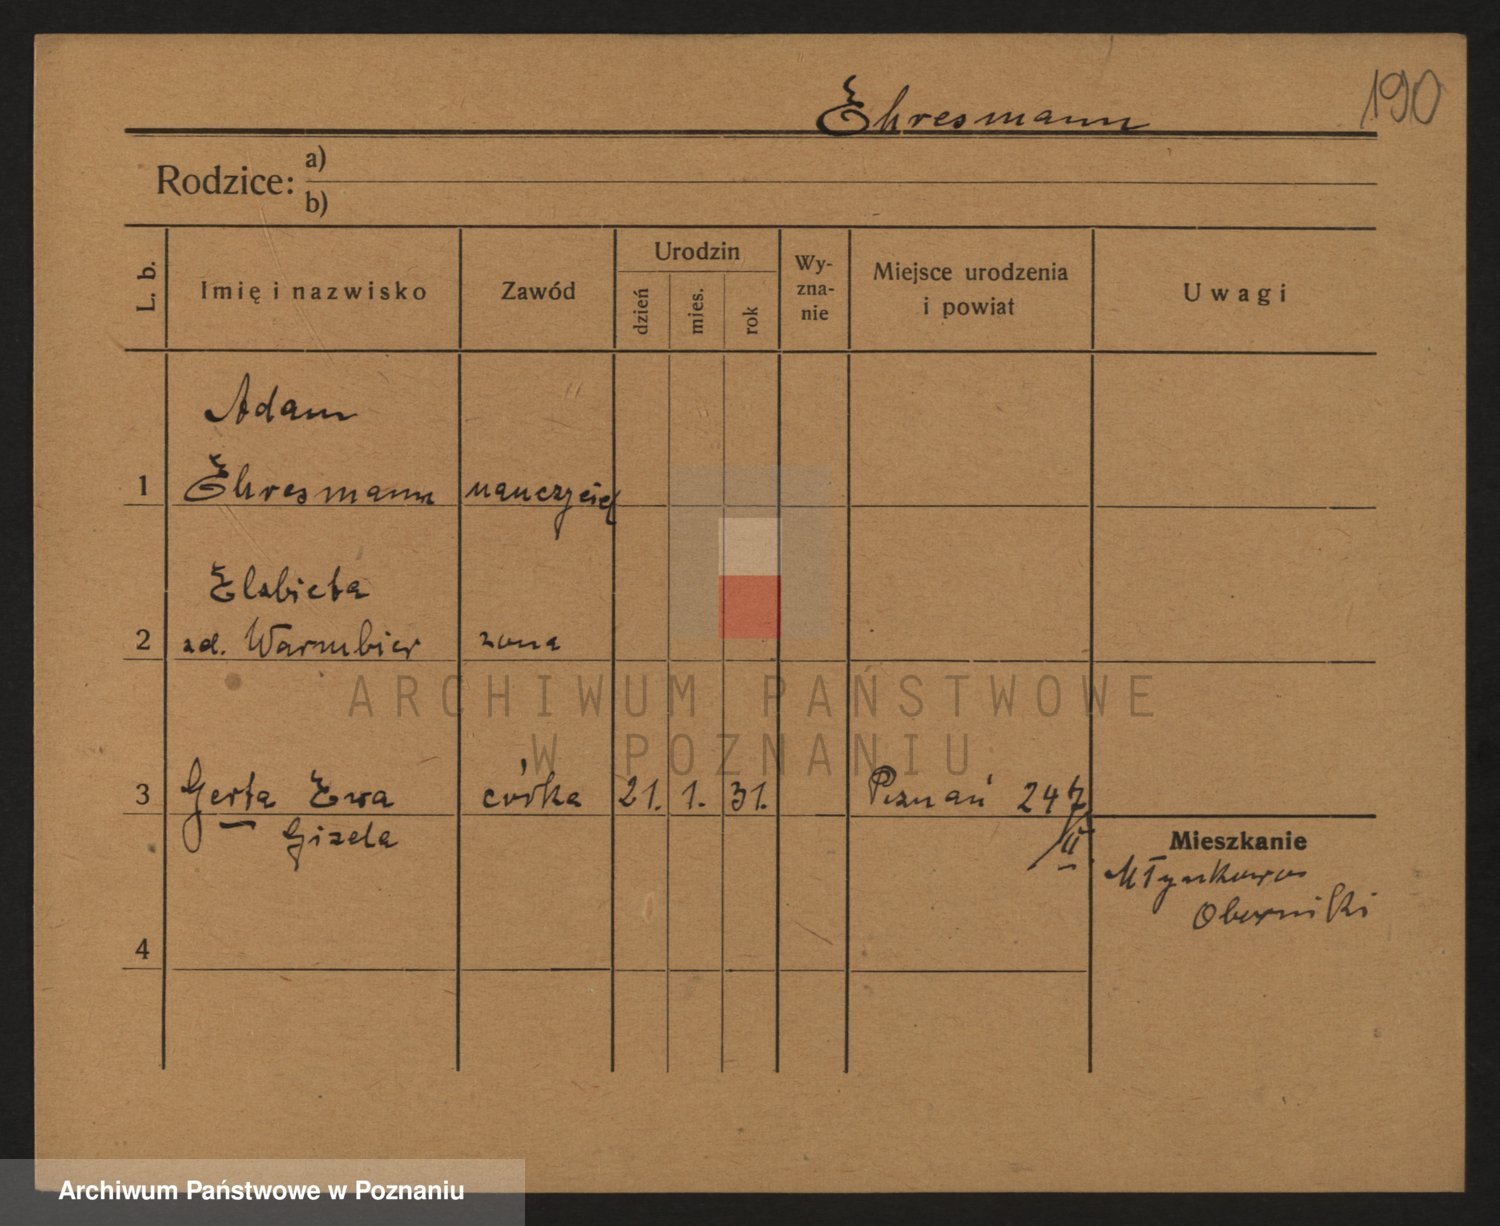 190
Ehresmann
Rodzice: a)
b)
L. b.
Imię i nazwisko
Zawód
Urodzin
dzień
mies.
rok
Wy-
zna-
nie
Miejsce urodzenia
i powiat
Uwagi
Adam
1 Ehresmann nauczyciel
Elzbieta
2 zd. Warmbier zona
ARCHIWUM PAŃSTWOWE
W POZNANIU
3 Gerta Ewa córka 21. 1. 31. Poznań 247
Gizela
/II
Mieszkanie
Młynkowo
Oborniki
4
Archiwum Państwowe w Poznaniu